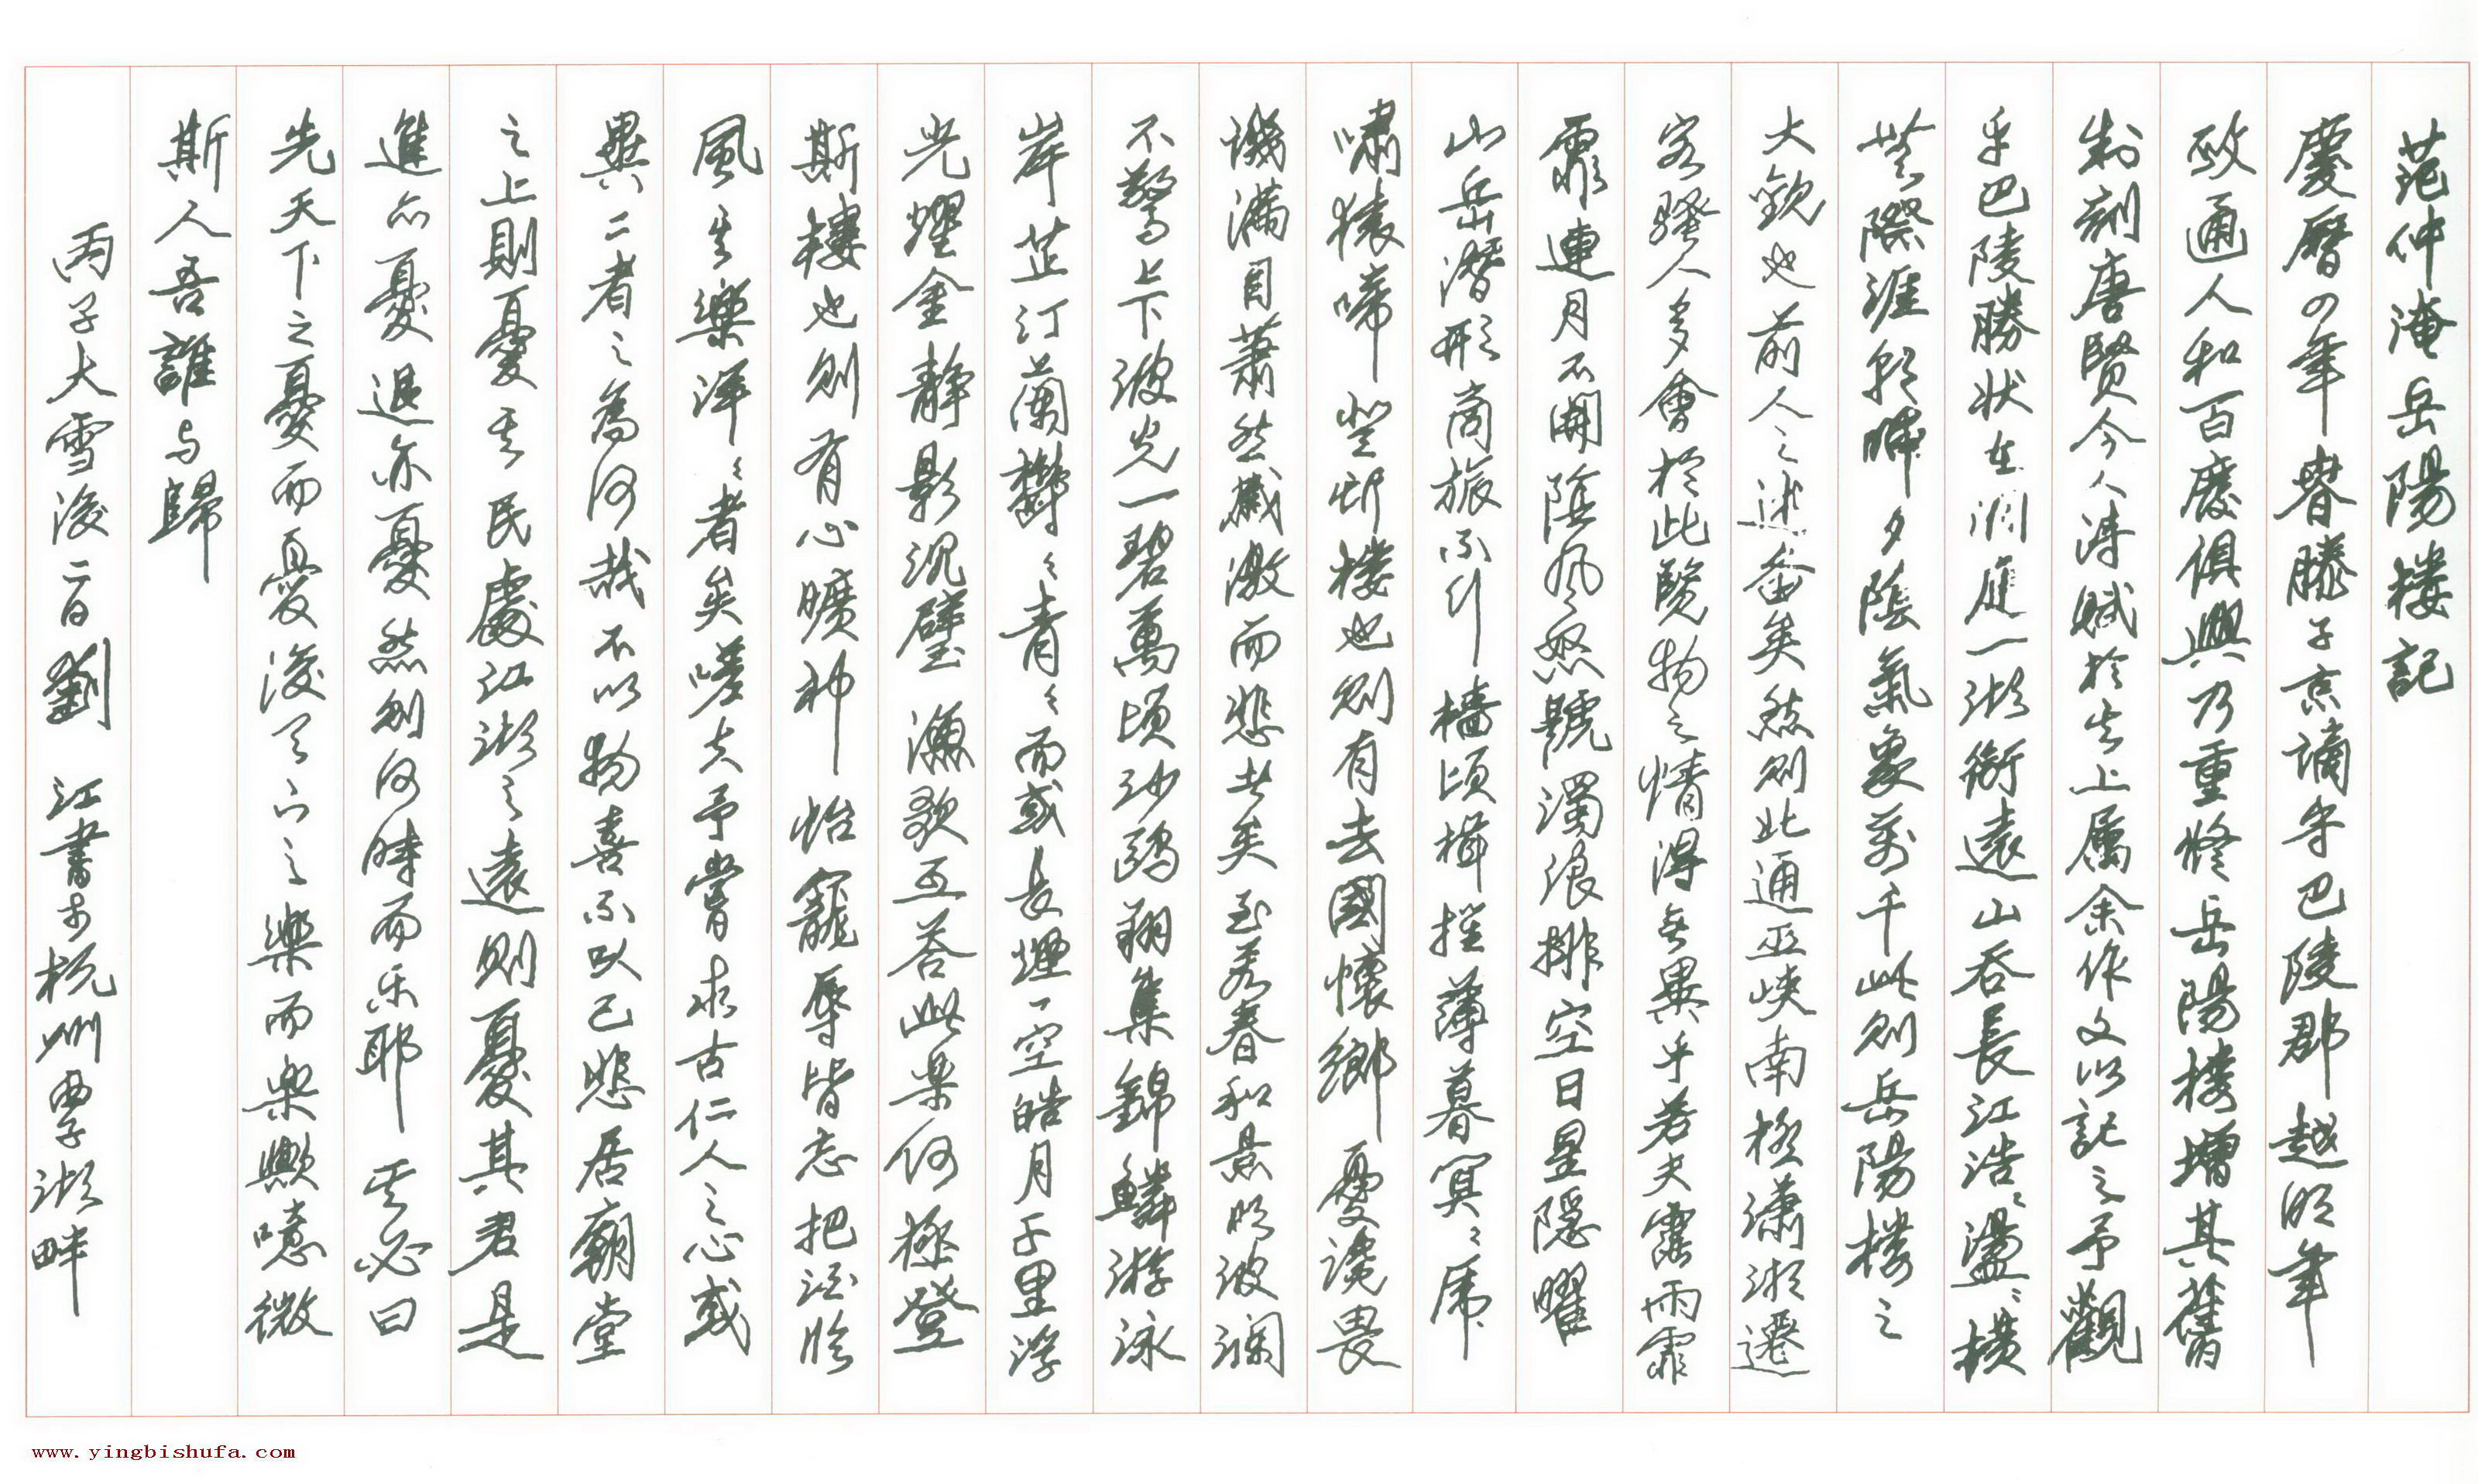 范仲淹岳陽樓記
慶曆四年春滕子京謫守巴陵郡越明年
政通人和百廢俱興乃重修岳陽樓增其舊
制刻唐賢今人詩賦於其上屬余作文以記之予觀
乎巴陵勝狀在洞庭一湖銜遠山吞長江浩浩蕩蕩橫
無際涯朝暉夕陰氣象萬千此則岳陽樓之
大觀也前人之述備矣然則北通巫峽南極瀟湘遷
客騷人多會於此覽物之情得無異乎若夫霪雨霏
霏連月不開陰風怒號濁浪排空日星隱曜
山岳潛形商旅不行檣傾楫摧薄暮冥冥虎
嘯猿啼登斯樓也則有去國懷鄉憂讒畏
譏滿目蕭然感激而悲者矣至若春和景明波瀾
不驚上下波光一碧萬頃沙鷗翔集錦鱗游泳
岸芷汀蘭鬱鬱青青而或長煙一空皓月千里浮
光耀金靜影沉璧漁歌互答此樂何極登
斯樓也則有心曠神怡寵辱皆忘把酒臨
風其樂洋洋者矣嗟夫予嘗求古仁人之心或
異二者之為何哉不以物喜不以己悲居廟堂
之上則憂其民處江湖之遠則憂其君是
進亦憂退亦憂然則何時而乐耶其必曰
先天下之憂而憂後天下之樂而樂歟噫微
斯人吾誰与歸
丙子大雪後二日劉江書於杭州西子湖畔
www.yingbishufa.com